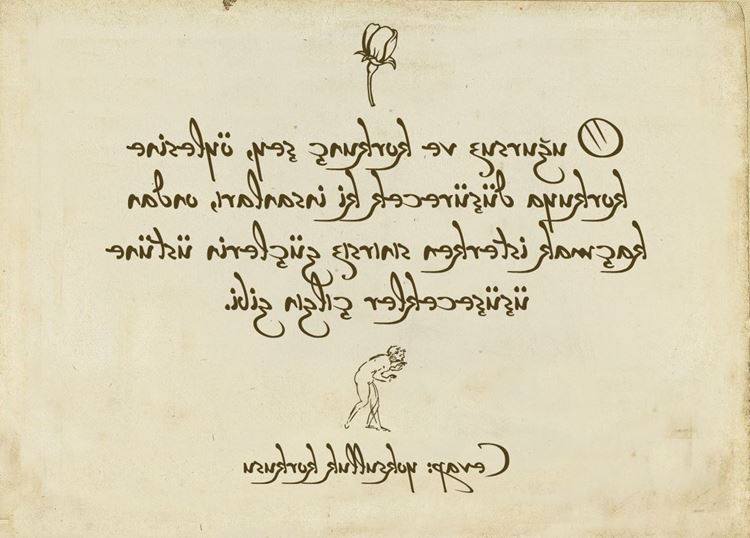 O uğursuz ve korkunç şey, öylesine
korkuya düşürecek ki insanları, ondan
kaçmak isterken sınırsız güçlerin üstüne
üşüşecekler çılgın gibi.
Cevap: yoksulluk korkusu